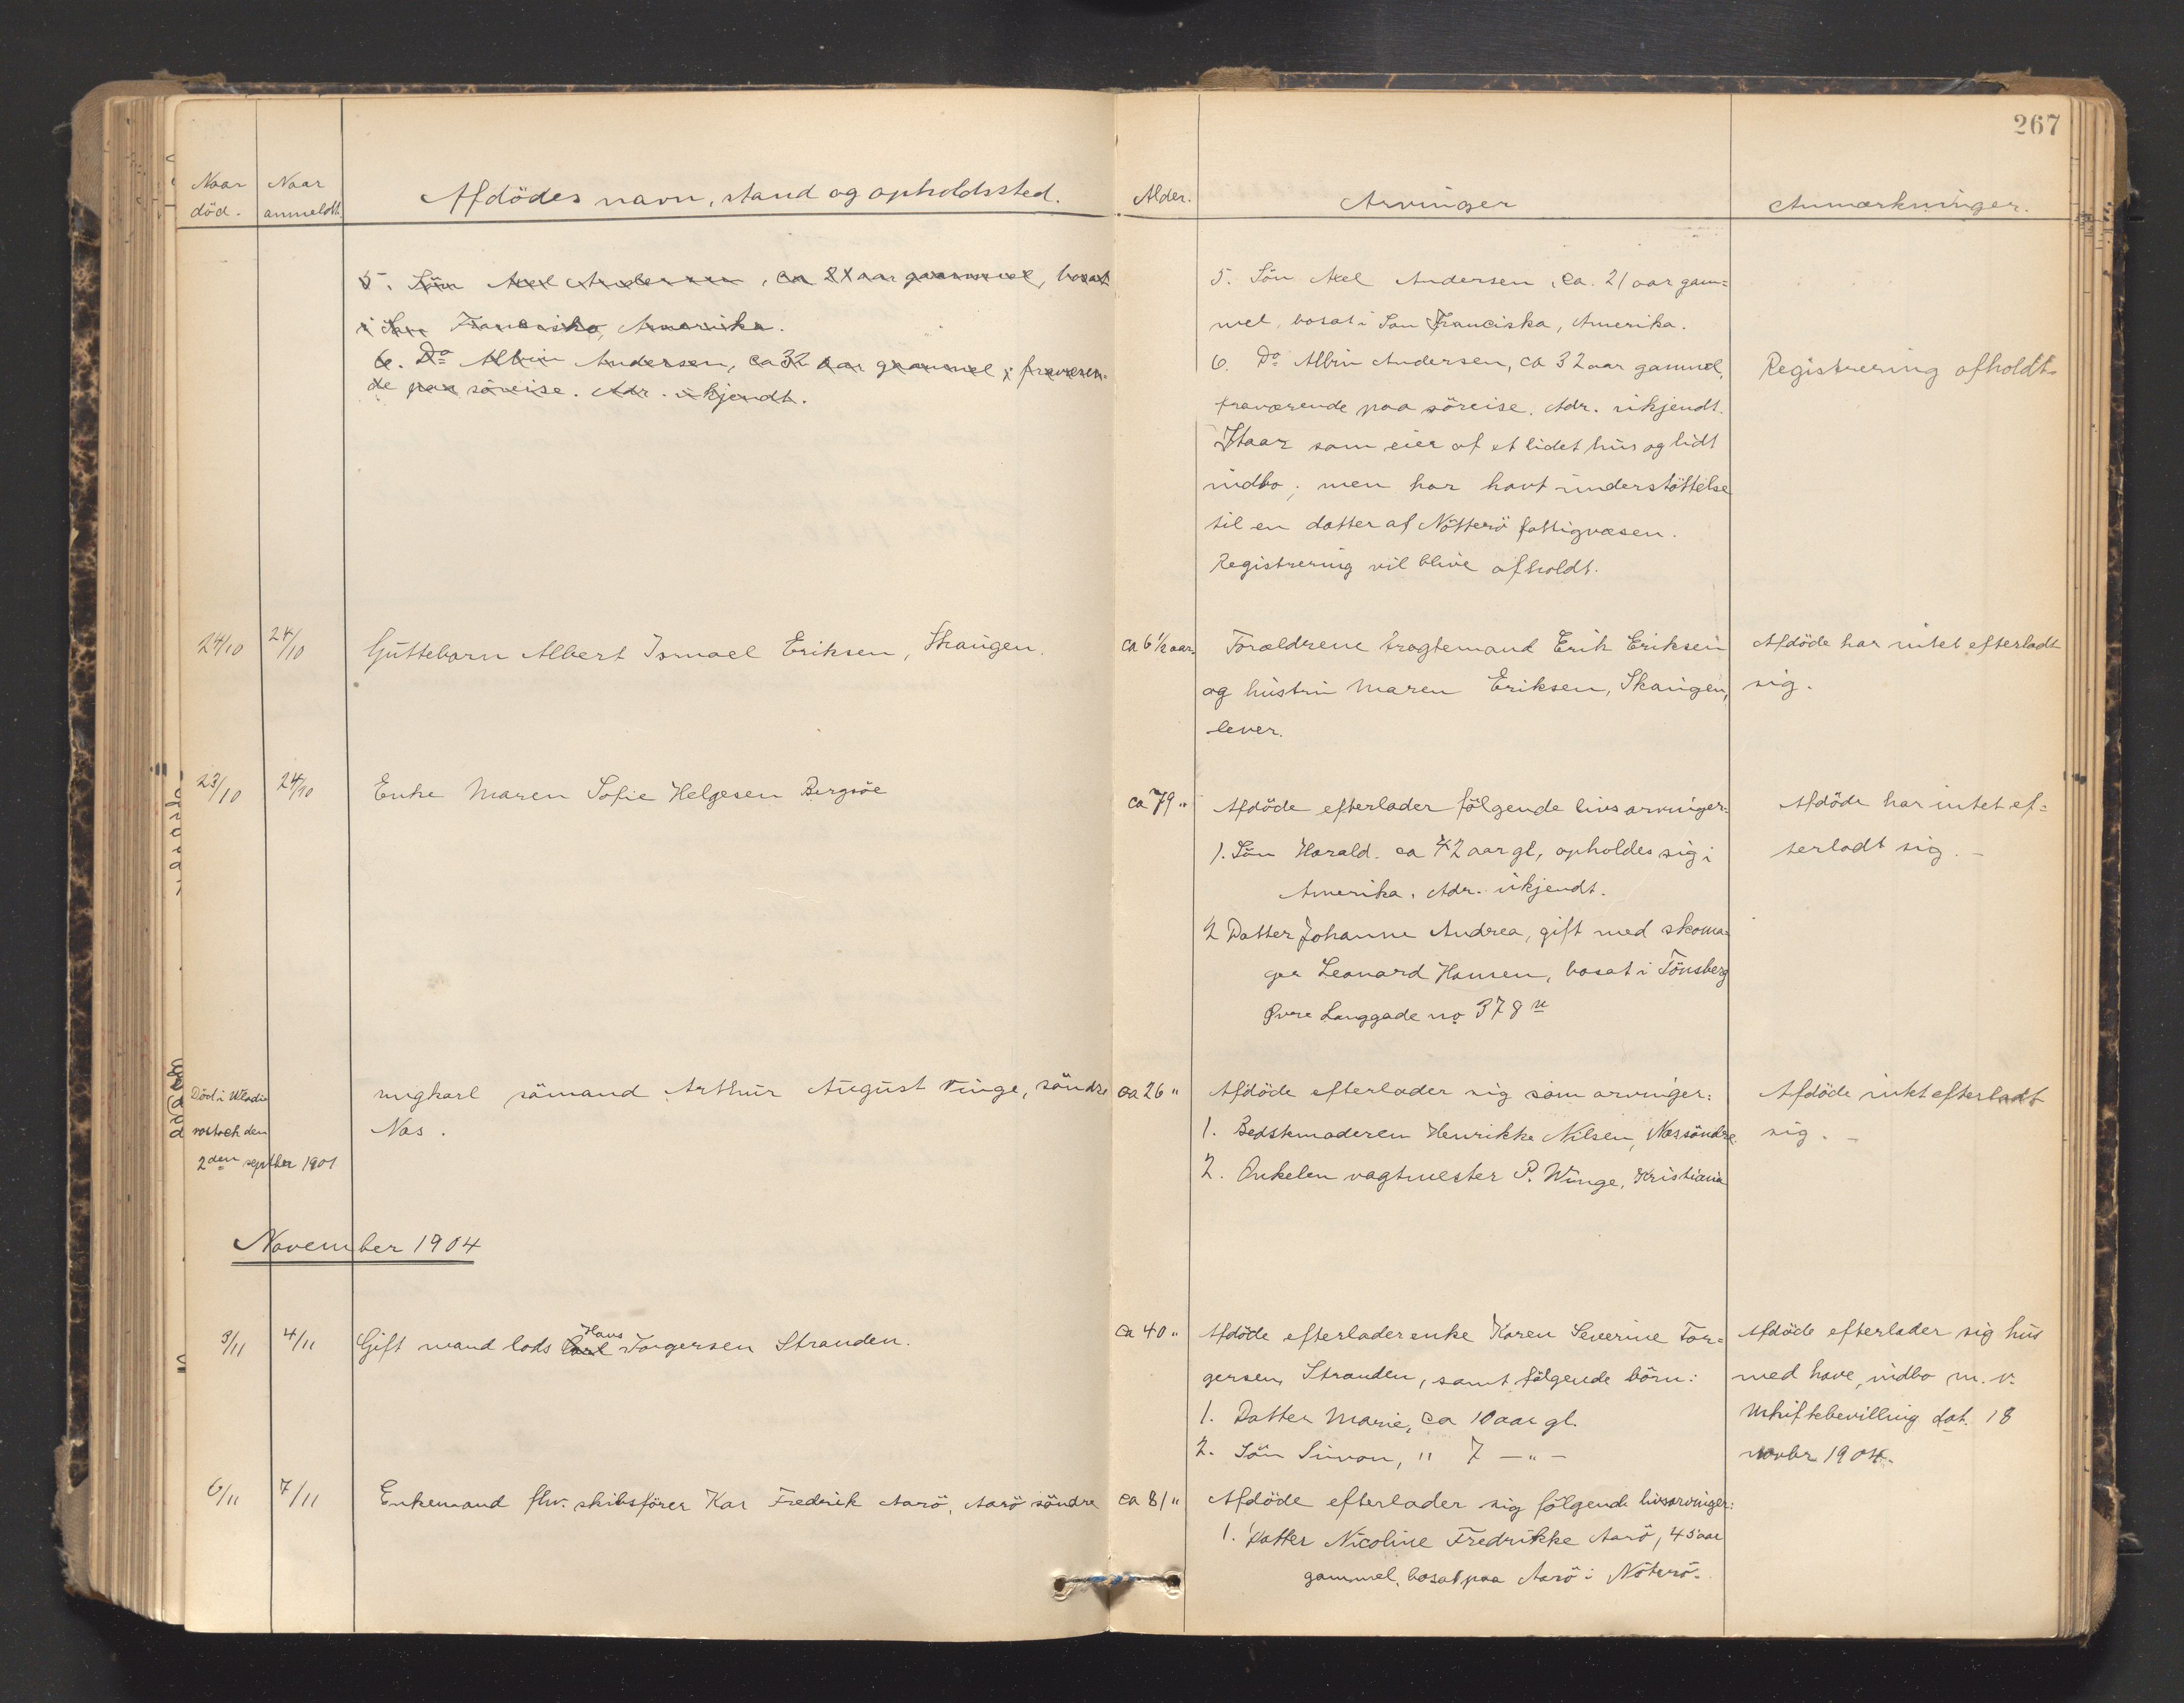 267
Naar død.
Naar anmeldt.
Afdödes navn, stand og opholdssted.
Alder.
Arvinger
Anmærkninger.
5. Sön Axel Andersen, ca 21 aar gammel, bosat
i San Franciska, Amerika.
6. Do Albin Andersen, ca 32 aar gammel, fraværen-
de paa söreise. Adr. ukjendt.
5. Sön Axel Andersen, ca. 21 aar gam=
mel, bosat i San Franciska, Amerika.
6. Do Albin Andersen, ca 32 aar gammel,
fraværende paa söreise. Adr. ukjendt.
Staar som eier af et lidet hus og lidt
indbo; men har havt understöttelse
til en datter af Nötterö fattigvæsen.
Registrering vil blive afholdt.
Registrering afholdt.
24/10
24/10
Guttebarn Albert Ismael Eriksen, Skaugen.
ca 6 1/2 aar.
Forældrene fragtemand Erik Eriksen
og hustru Maren Eriksen, Skaugen,
lever.
Afdöde har intet efterladt
sig.
23/10
24/10
Enke Maren Sofie Helgesen Bergsöe
ca 79 "
Afdöde efterlader fölgende livsarvinger:
1. Sön Harald. ca 42 aar gl, opholdes sig i
Amerika. Adr. ukjendt.
2 Datter Johanne Andrea, gift med skoma=
ger Leonard Hansen, bosat i Tönsberg
Øvre Langgade no 378
Afdöde har intet ef=
terladt sig. -
Död i Wladi
vostock den
2den septbr 1901
ungkarl sömand Arthur August Vinge, söndre
Nes.
ca 26 "
Afdöde efterlader sig som arvinger:
1. Bedstemoderen Henrikke Nilsen, Nessöndre
2. Onkelen vagtmester P. Winge, Kristiania
Afdöde intet efterladt
sig. -
November 1904
3/11
4/11
Gift mand lods Carl Hans Torgersen Stranden.
ca 40 "
Afdöde efterlader enke Karen Severine Tor=
gersen, Stranden, samt fölgende börn:
1. Datter Marie, ca 10 aar gl.
2. Sön Simon, " 7 - " -
Afdöde efterlader sig hus
med have, indbo m. v.
Uskiftebevilling dat. 18
novbr 1904.
6/11
7/11
Enkemand fhv. skibsförer Kar Fredrik Aarö, Aarö söndre
ca 81 "
Afdöde efterlader sig fölgende livsarvinger:
1. Datter Nicoline Fredrikke Aarö, 45 aar
gammel, bosat paa Aarö i Nöterö.